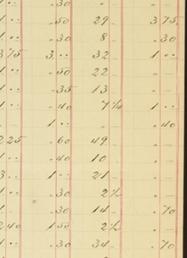 1 .. . 30
.. . 50 29 3 75
1 .. . 30 8 . 30
3 75 3 .. 32 1 ..
1 .. . 50 22
1 .. . 35 13
1 .. . 40 7 1 ..
1 .. . 40
2 25 . 60 49
1 .. . 40 10
3 .. 1 .. 21
1 ..
1 .. . 30 2½
1 .. . 30 14 . 70
2 40 1 50 2½
1 .. . 30 34 . 70